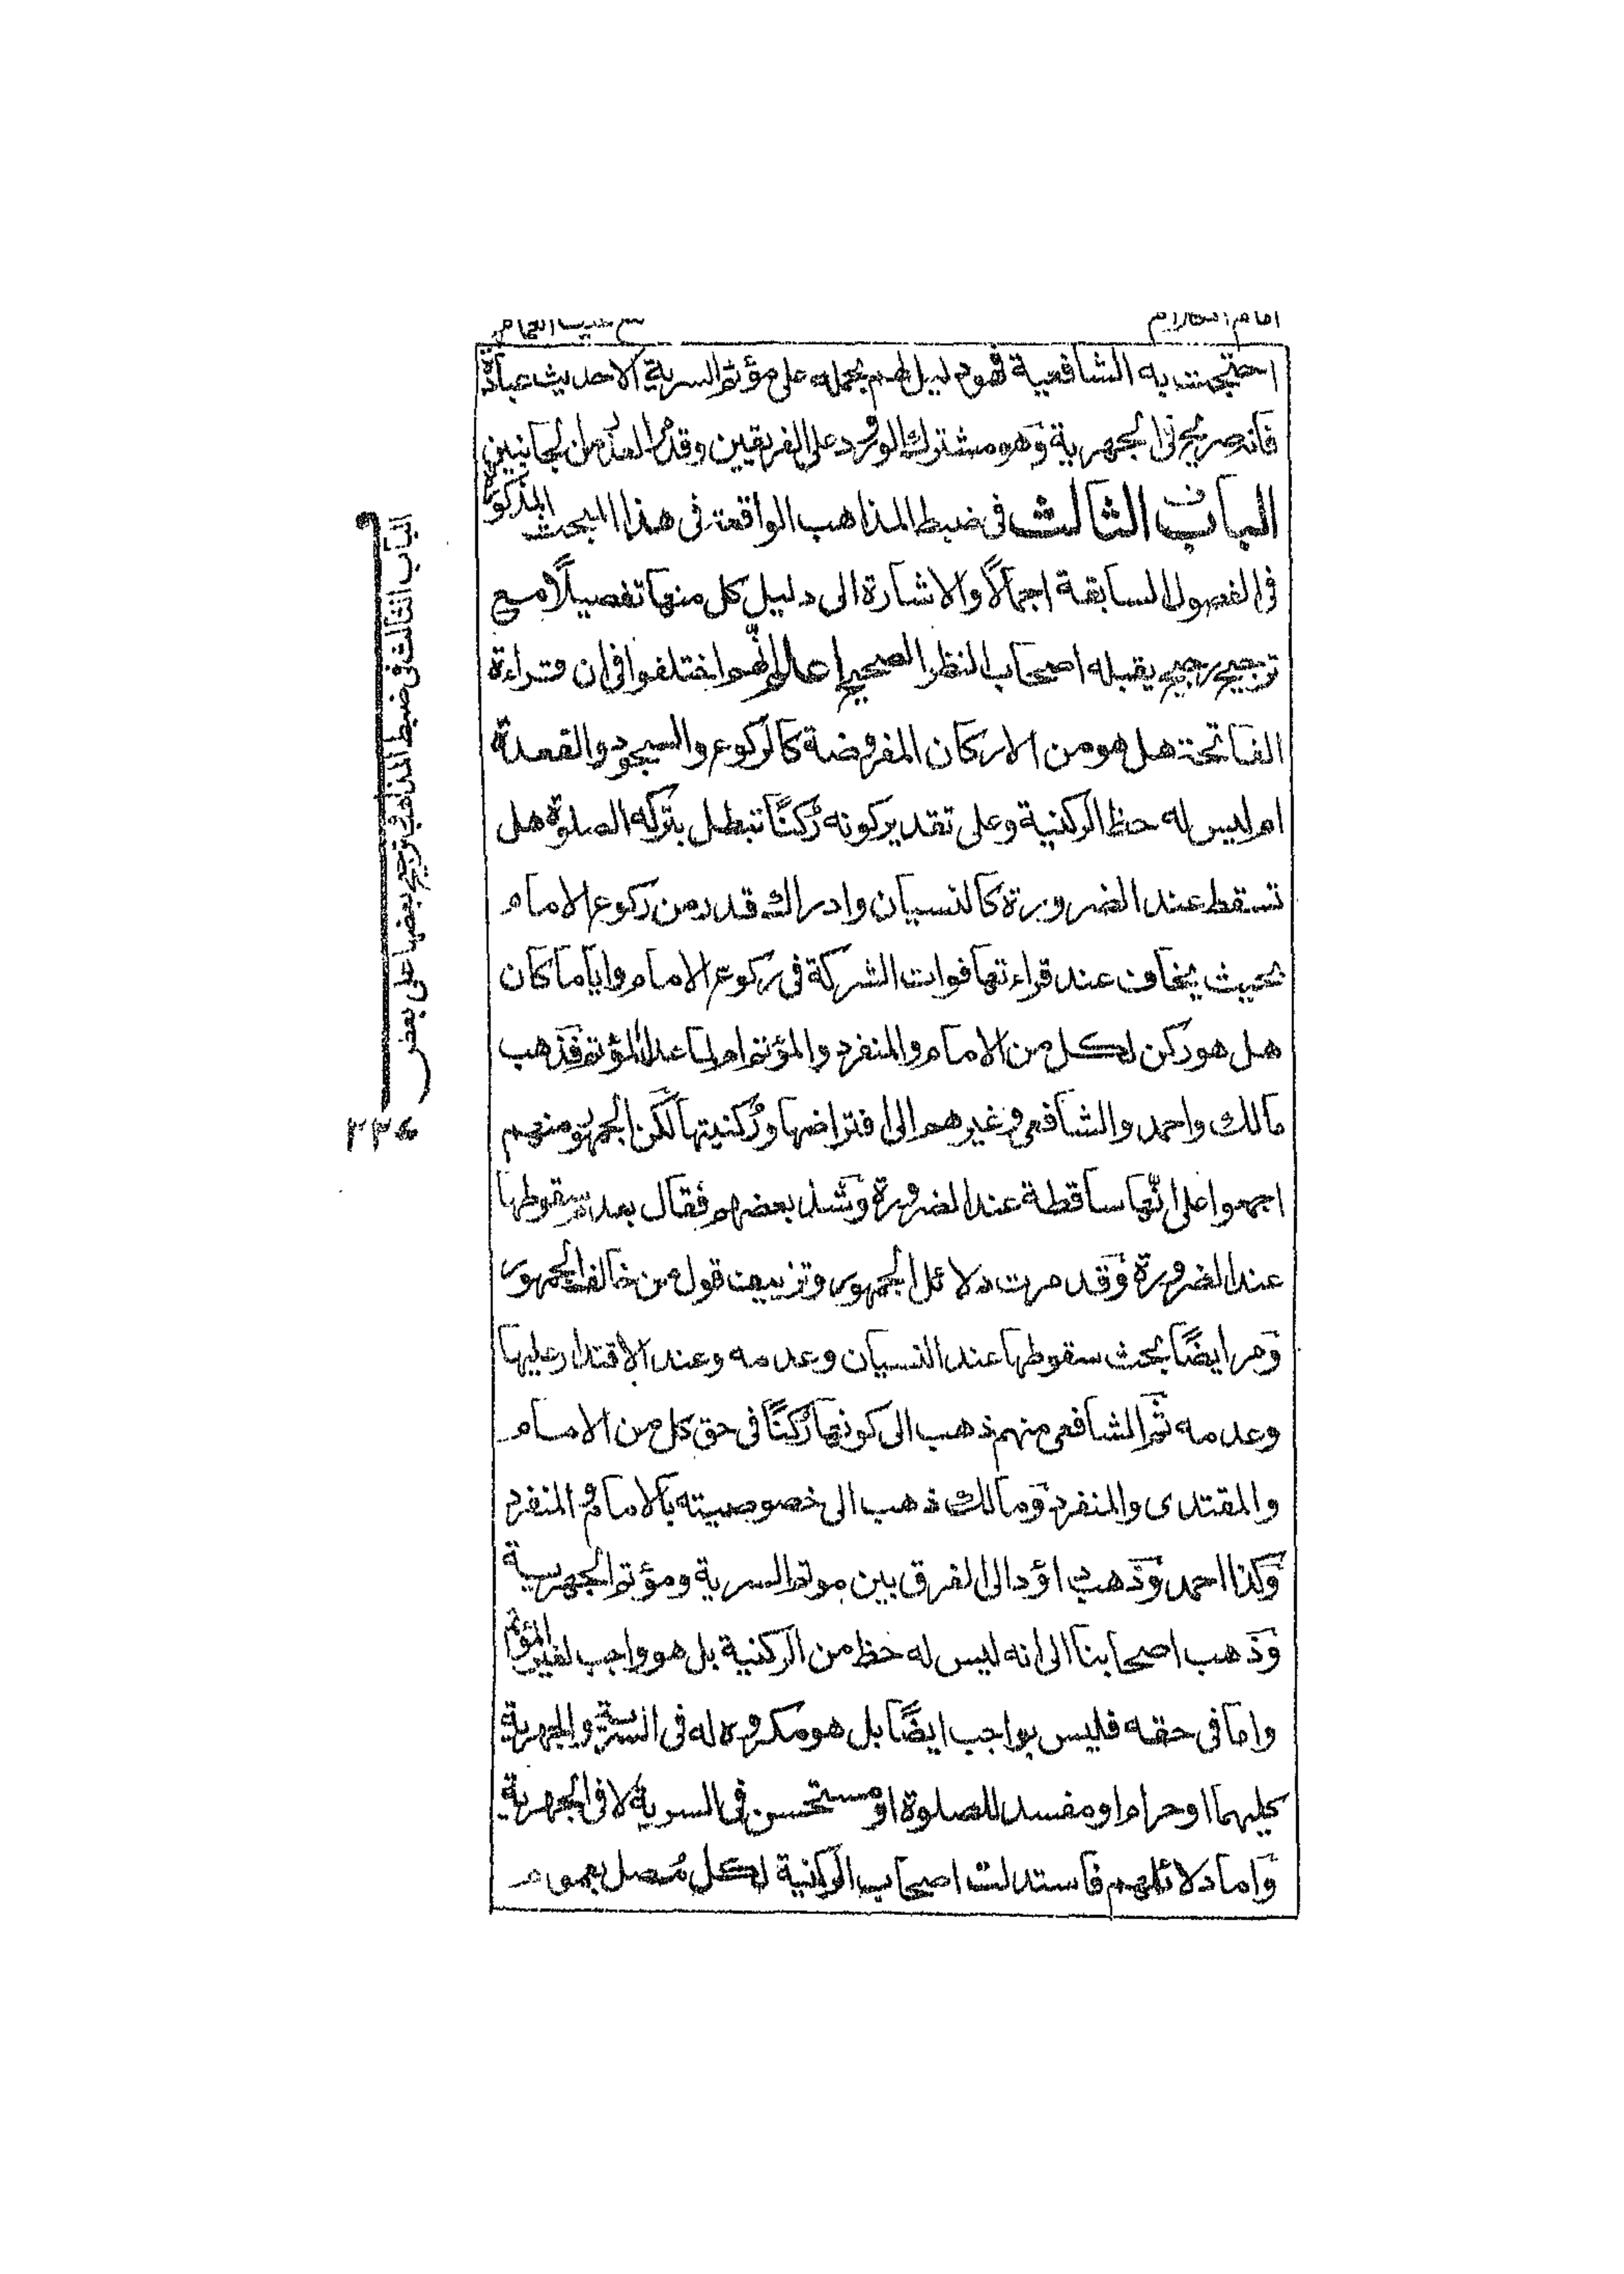 امام الكلام
احتجت به الشافعية فهو دليل لهم بحمله على مؤتم السرية الا حديث عبادة
فانه صريح فى الجهرية وهو مشترك الورود على الفريقين وقد مر العذر من الجانبين
الباب الثالث فى ضبط المذاهب الواقعة فى هذا المبحث المذكورة
فى الفصول السابقة اجمالًا والاشارة الى دليل كل منها تفصيلًا مع
ترجيح رجيح يقبله اصحاب النظر الصحيح اعلم انّهم اختلفوا فى ان قراءة
الفاتحة هل هو من الاركان المفروضة كالركوع والسجود والقعدة
ام ليس له حظ الركنية وعلى تقدير كونه رُكنًا تبطل بتركه الصلوة هل
تسقط عند الضرورة كالنسيان وادراك قدر من ركوع الامام
بحيث يخاف عند قراءتها فوات الشركة فى ركوع الامام وايّاما كان
هل هو ركن لكل من الامام والمنفرد والمؤتم ام لما عدا المؤتم فذهب
مالك واحمد والشافعى وغيرهم الى افتراضها ورُكنيتها لكن الجمهور منهم
اجمعوا على انّها ساقطة عند الضرورة وشذ بعضهم فقال بعدم سقوطها
عند الضرورة وقد مرت دلائل الجمهور وتزييف قول من خالف الجمهور
ومر ايضًا بحث سقوطها عند النسيان وعدمه وعند الاقتدار عليها
وعدمه ثمّ الشافعى منهم ذهب الى كونها رُكنًا فى حق كل من الامام
والمقتدى والمنفرد ومالك ذهب الى خصوصيته بالامام والمنفرد
وكذا احمد وذهب داؤد الى الفرق بين موتم السرية ومؤتم الجهرية
وذهب اصحابنا الى انه ليس له حظ من الركنية بل هو واجب لغير المؤتم
واما فى حقه فليس بواجب ايضًا بل هو مكروه له فى السرية والجهرية
كليهما او حرام او مفسد للصلوة او مستحسن فى السرية لا فى الجهرية
واما دلائلهم فاستدلت اصحاب الركنية لكل مُصل بعموم
الباب الثالث فى ضبط المذاهب وترجيح بعضها على بعض